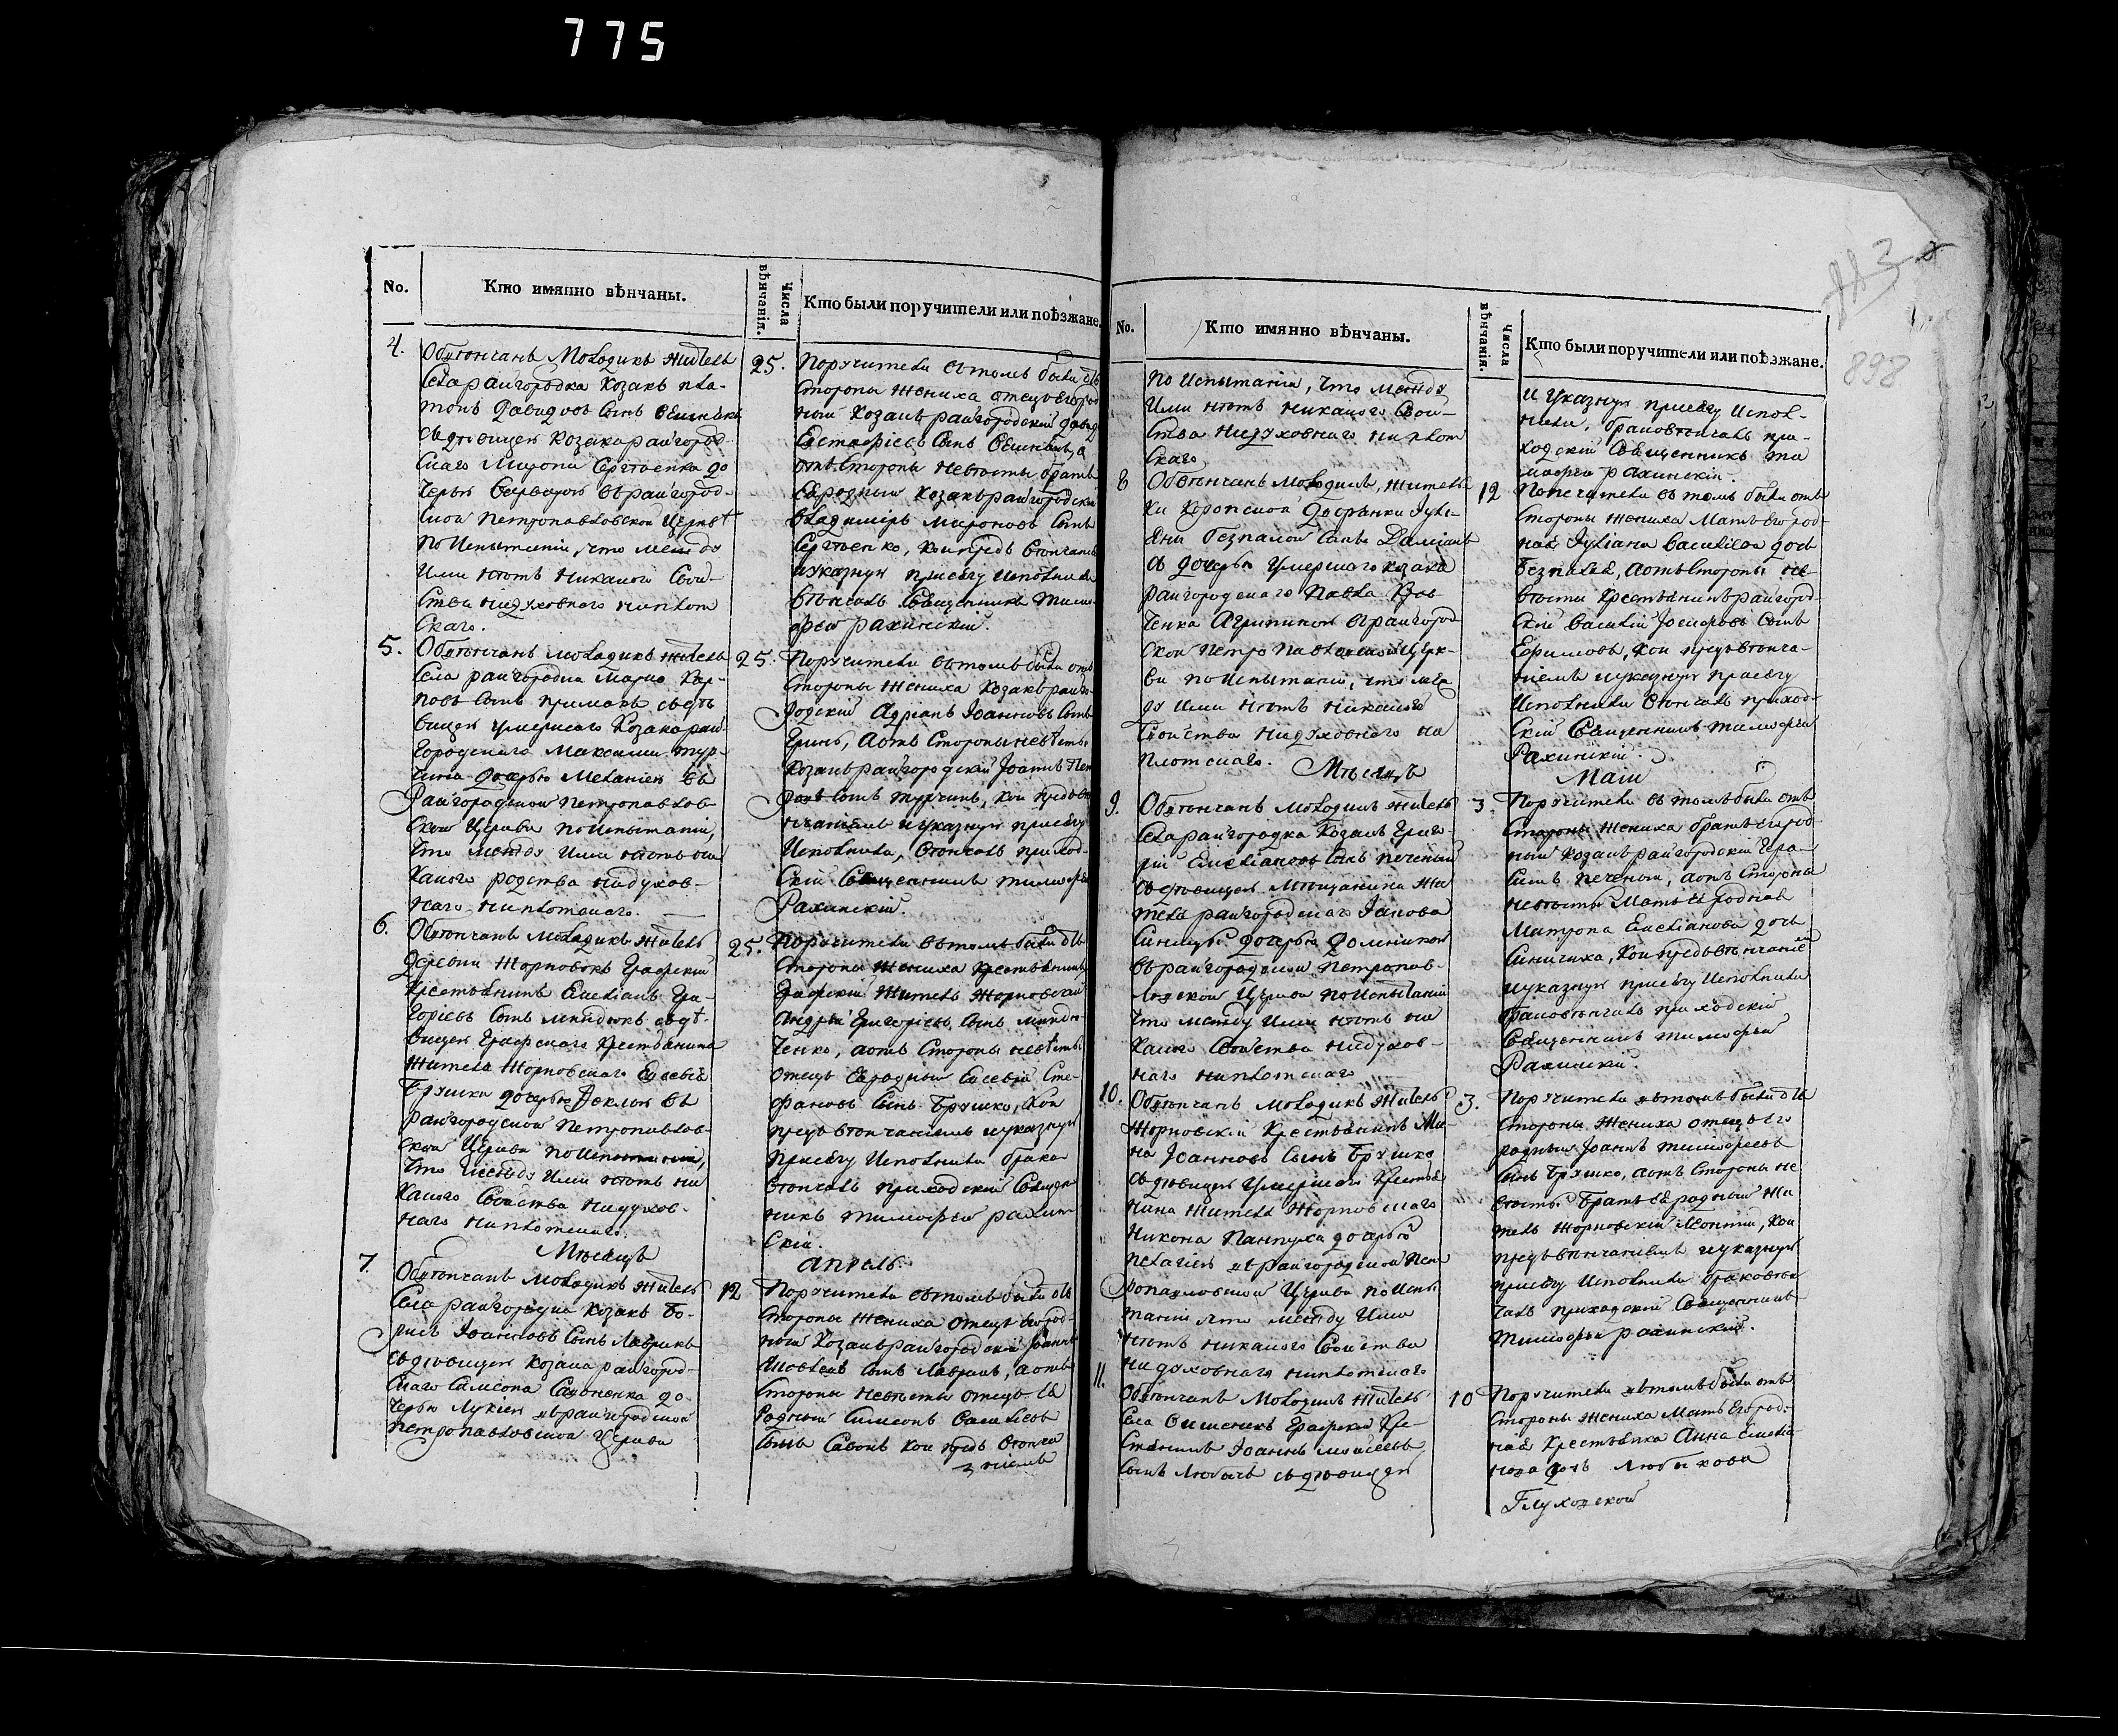 775
No.
Кто имянно вѣнчаны.
Числа вѣнчанія.
Кто были поручители или поѣзжане.
4.
Обвѣнчанъ Молодикъ житель
села райгородка козакъ пла-
тонъ Давидовъ сынъ
съ дѣвицею козака райгород-
скаго Мирона Сергѣенка до
черью Варварою въ райгород-
ской петропавловской церквѣ
по испытаніи, что между
ими нѣтъ никакого свой-
ства нидуховнаго ниплот
скаго.
25.
Поручители въ томъ были отъ
стороны жениха отецъ его род
ный козакъ райгородскій давид
Евстафіевъ сынъ а
отъ стороны невѣсты братъ
еѣ родный козакъ райгородскій
владимиръ мироновъ сынъ
Сергѣенко, кои предъ вѣнчаніемъ
и указную присягу исполнили
вѣнчалъ священникъ тимо-
фей рахинскій.
5.
Обвѣнчанъ молодикъ житель
села райгородка Марко Кар-
повъ сынъ примакъ съ дѣ-
вицею умершаго козака рай-
городскаго Максима тур-
чина дочерью Меланіею въ
Райгородской петропавлов-
ской церкви по испытаніи,
что между ими нѣтъ ни
какого родства нидухов-
наго ниплотскаго.
25.
Поручители въ томъ были отъ
стороны жениха козакъ райго-
родскій Адріанъ Іоанновъ сынъ
а отъ стороны невѣсты
козакъ райгородскій Іоаннъ Пет
ровъ сынъ турчинъ, кои предъ вѣ
нчаніемъ и указную присягу
исполнили, вѣнчалъ приход-
скій священникъ тимофей
Рахинскій.
6.
Обвѣнчанъ молодикъ житель
деревни жорновокъ графскій
крестьянинъ Емеліанъ Гри-
горіевъ сынъ съ дѣ-
вицею графскаго крестьянина
жителя жорновскаго Евсевія
Брушка дочерью Ѳеклою въ
райгородской петропавлов-
ской церкви по испытаніи,
что между ими нѣтъ ни
какого свойства нидухов-
наго ниплотскаго.
25.
Поручители въ томъ были отъ
стороны жениха крестьянинъ
графскій житель жорновскій
андрей Григорієвъ сынъ
ченко, а отъ стороны невѣсты
отецъ еѣ родный Евсевій Сте-
фановъ сынъ Брушко, кои
предъ вѣнчаніемъ и указную
присягу исполнили брака
вѣнчалъ приходскій священ
никъ тимофей рахин-
скій.
Мѣсяцъ апрѣль.
7
Обвѣнчанъ молодикъ житель
села райгородка козакъ Бо-
рисъ Іоанновъ сынъ Лаврикъ
съ дѣвицею козака райгород-
скаго Самсона Савоненка до-
черью Лукіею въ райгородской
петропавловской церкви
12
Поручители въ томъ были отъ
стороны жениха отецъ его род-
ной козакъ райгородскій Іоаннъ
сынъ Лаврикъ, а отъ
стороны невѣсты отецъ еѣ
родный Самсонъ
сынъ Савонъ кои предъ вѣнча
ніемъ
No.
Кто имянно вѣнчаны.
Числа вѣнчанія.
Кто были поручители или поѣзжане.
883
898
по испытаніи, что между
ими нѣтъ никакого свой-
ства нидуховнаго ниплот
скаго
и указную присягу испол-
нили, браковѣнчалъ при-
ходскій священникъ ти
мофей рахинскій.
8
Обвѣнчанъ молодикъ, жител
ки коропской Іулі-
яни безпалой сынъ Даміанъ
съ дочерью умершаго козака
райгородскаго Павла
ченка Агрипиною въ райгород
ской петропавловской церк-
ви по испытаніи, что меж
ду ими нѣтъ никакого
свойства нидуховнаго ни
плотскаго.
12
Попечители въ томъ были отъ
стороны жениха мать его род-
ная Іуліана Василіева дочь
безпалая, а отъ стороны не-
вѣсты крестьянинъ райгород-
скій Василій Іосифовъ сынъ
Ефимовъ, кои предъ вѣнча-
ніемъ и указную присягу
исполнили вѣнчалъ приход-
скій священникъ тимофей
Рахинскій.
Мѣсяцъ Маій
9.
Обвѣнчанъ молодикъ житель
села райгородка козакъ Григо-
рій Емеліановъ сынъ печеный
съ дѣвицею мѣщанина жи
теля райгородскаго Іакова
Синицы дочерью Домникою
въ райгородской петропав-
ловской церкви по испытаніи
что между ими нѣтъ ни
какого свойства нидухов-
наго ниплотскаго
3
Поручители въ томъ были отъ
стороны жениха братъ его род-
ный козакъ райгородскій Гера-
симъ печеный, а отъ стороны
невѣсты мать еѣ родная
Матрона Емеліанова дочь
Синичиха, кои предъ вѣнчаніемъ
и указную присягу исполнили
браковѣнчалъ приходскій
священникъ тимофей
Рахинскій.
10.
Обвѣнчанъ молодикъ житель
жорновскій крестьянинъ Ми-
на Іоанновъ сынъ Брушко
съ дѣвицею умершаго крестья
нина жителя жорновскаго
Никона дочерью
пелагіею въ райгородской пет
ропавловской церкви по испы
таніи что между ими
нѣтъ никакого свойства
нидуховнаго ниплотскаго
3.
Поручители въ томъ были отъ
стороны жениха отецъ его
родный Іоаннъ тимофеевъ
сынъ Брушко, а отъ стороны не
вѣсты братъ еѣ родный жи
тель жорновскій Леонтій, кои
предъ вѣнчаніемъ и указную
присягу исполнили браковѣн
чалъ приходскій священникъ
тимофей рахинскій.
11.
Обвѣнчанъ молодикъ житель
села вишенекъ графскій кре-
стьянинъ Іоаннъ моисеевъ
сынъ Любичъ съ дѣвицею
10
Поручители въ томъ были отъ
стороны жениха мать его род-
ная крестьянка Анна Емеліа-
нова дочь
Глуховской